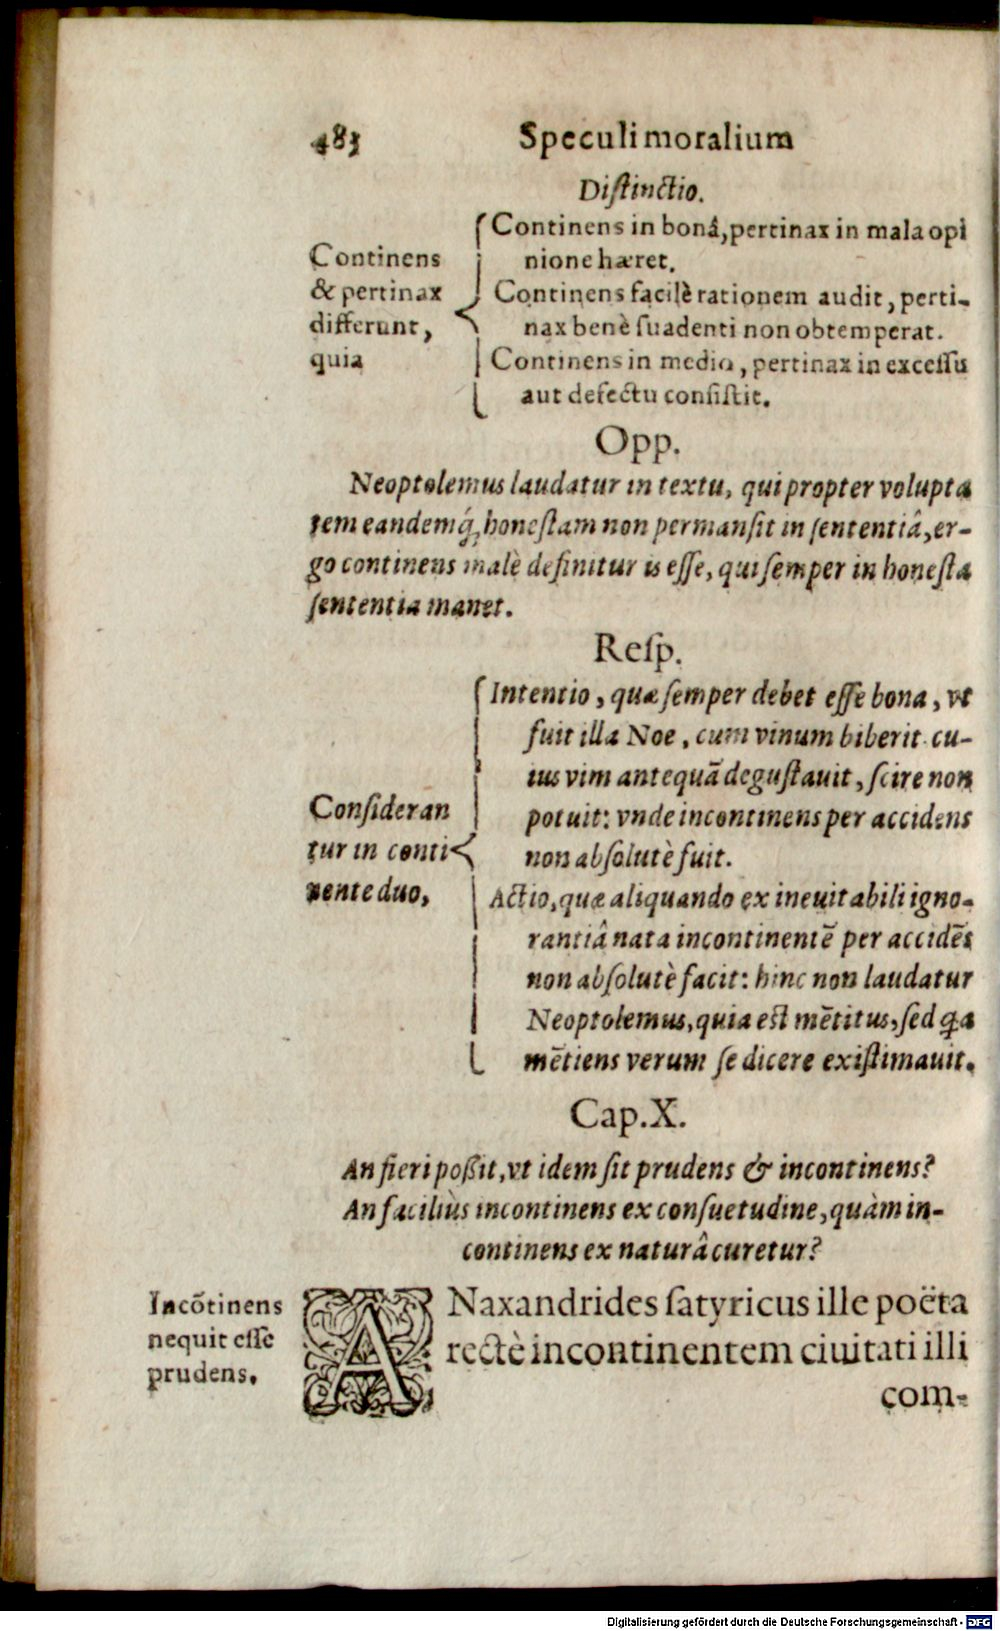 483
Speculi moralium
Distinctio.
Continens
& pertinax
differunt,
quia
Continens in bonâ, pertinax in mala opi
nione hæret.
Continens facilè rationem audit, perti-
nax benè ſuadenti non obtemperat.
Continens in medio, pertinax in exceſſu
aut defectu conſiſtit.
Opp.
Neoptolemus laudatur in textu, qui propter volupta
tem eandemq́; honeſtam non permanſit in ſententiâ, er-
go continens malè definitur is eſſe, qui ſemper in honeſta
ſententia manet.
Reſp.
Conſideran
tur in conti
nente duo,
Intentio, quæ ſemper debet eſſe bona, vt
fuit illa Noe, cum vinum biberit cu-
ius vim antequā deguſtauit, ſcire non
potuit: vnde incontinens per accidens
non abſolutè fuit.
Actio, quæ aliquando ex ineuitabili igno-
rantiâ nata incontinentē per accidēs
non abſolutè facit: hinc non laudatur
Neoptolemus, quia eſt mētitus, ſed qa
mētiens verum ſe dicere exiſtimauit.
Cap. X.
An fieri poßit, vt idem ſit prudens & incontinens?
An faciliùs incontinens ex conſuetudine, quàm in-
continens ex naturâ curetur?
Incōtinens
nequit eſſe
prudens.
ANaxandrides ſatyricus ille poëta
rectè incontinentem ciuitati illi
com-
Digitalisierung gefördert durch die Deutsche Forschungsgemeinschaft - DFG